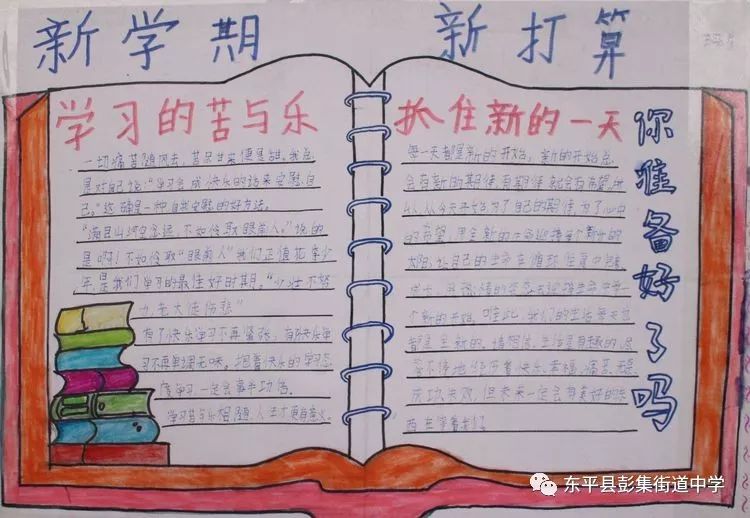 新学期 新打算
学习的苦与乐
一切痛苦随风去，苦尽甘来便是甜。我总
是对自己说："学习会成快乐的话来安慰自
己。"这确是一种自我安慰的好方法。
"满目山河空念远，不如怜取眼前人。"说的
是啊！不如怜取"眼前人"我们正值花季少
年，是我们学习的最佳好时期。"少壮不努
力，老大徒伤悲"
有了快乐学习不再紧张，有了快乐学
习不再单调无味。抱着快乐的学习态
度学习一定会事半功倍。
学习苦与乐相随，人生才更有意义
抓住新的一天
每一天都是新的开始，新的开始总
会有新的期待，有期待就会有希望，
从今天开始为了自己的期待，为了心中
的希望，用全新的
太阳，让自己的生命在循环
个新的开始。唯此，我们的生活每天
都是全新的。请相信，生活是有趣的，总
会不停地经历着快乐、幸福、痛苦、无奈、
成功、失败，但未来一定会有美好的东
西在等着我们
你准备好了吗
东平县彭集街道中学